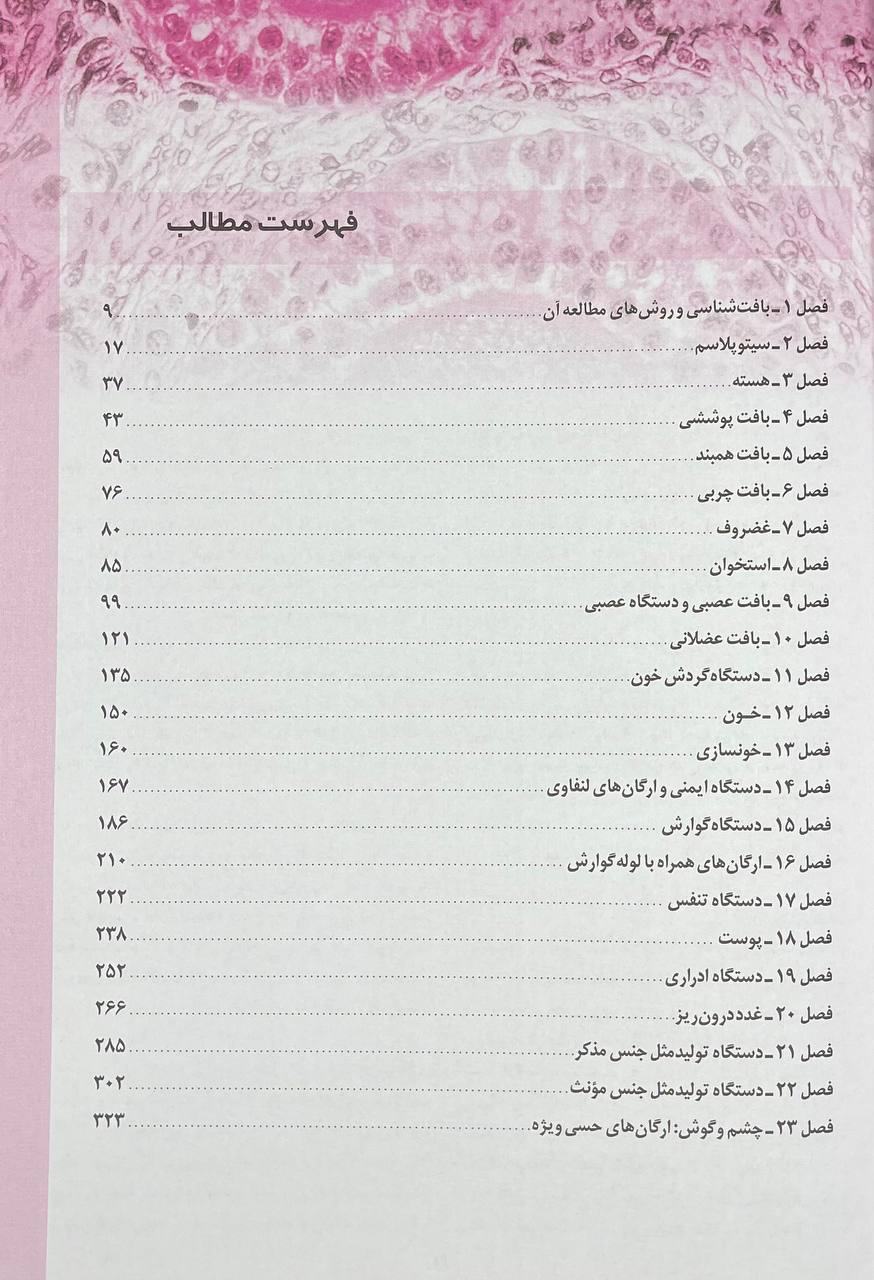 فهرست مطالب
فصل ۱ ـ بافت‌شناسی و روش‌های مطالعه آن ........ ۹
فصل ۲ ـ سیتوپلاسم ........ ۱۷
فصل ۳ ـ هسته ........ ۳۷
فصل ۴ ـ بافت پوششی ........ ۴۳
فصل ۵ ـ بافت همبند ........ ۵۹
فصل ۶ ـ بافت چربی ........ ۷۶
فصل ۷ ـ غضروف ........ ۸۰
فصل ۸ ـ استخوان ........ ۸۵
فصل ۹ ـ بافت عصبی و دستگاه عصبی ........ ۹۹
فصل ۱۰ ـ بافت عضلانی ........ ۱۲۱
فصل ۱۱ ـ دستگاه گردش خون ........ ۱۳۵
فصل ۱۲ ـ خـون ........ ۱۵۰
فصل ۱۳ ـ خونسازی ........ ۱۶۰
فصل ۱۴ ـ دستگاه ایمنی و ارگان‌های لنفاوی ........ ۱۶۷
فصل ۱۵ ـ دستگاه گوارش ........ ۱۸۶
فصل ۱۶ ـ ارگان‌های همراه با لوله گوارش ........ ۲۱۰
فصل ۱۷ ـ دستگاه تنفس ........ ۲۲۲
فصل ۱۸ ـ پوست ........ ۲۳۸
فصل ۱۹ ـ دستگاه ادراری ........ ۲۵۲
فصل ۲۰ ـ غدد درون‌ریز ........ ۲۶۶
فصل ۲۱ ـ دستگاه تولیدمثل جنس مذکر ........ ۲۸۵
فصل ۲۲ ـ دستگاه تولیدمثل جنس مؤنث ........ ۳۰۲
فصل ۲۳ ـ چشم و گوش: ارگان‌های حسی ویژه ........ ۳۲۳